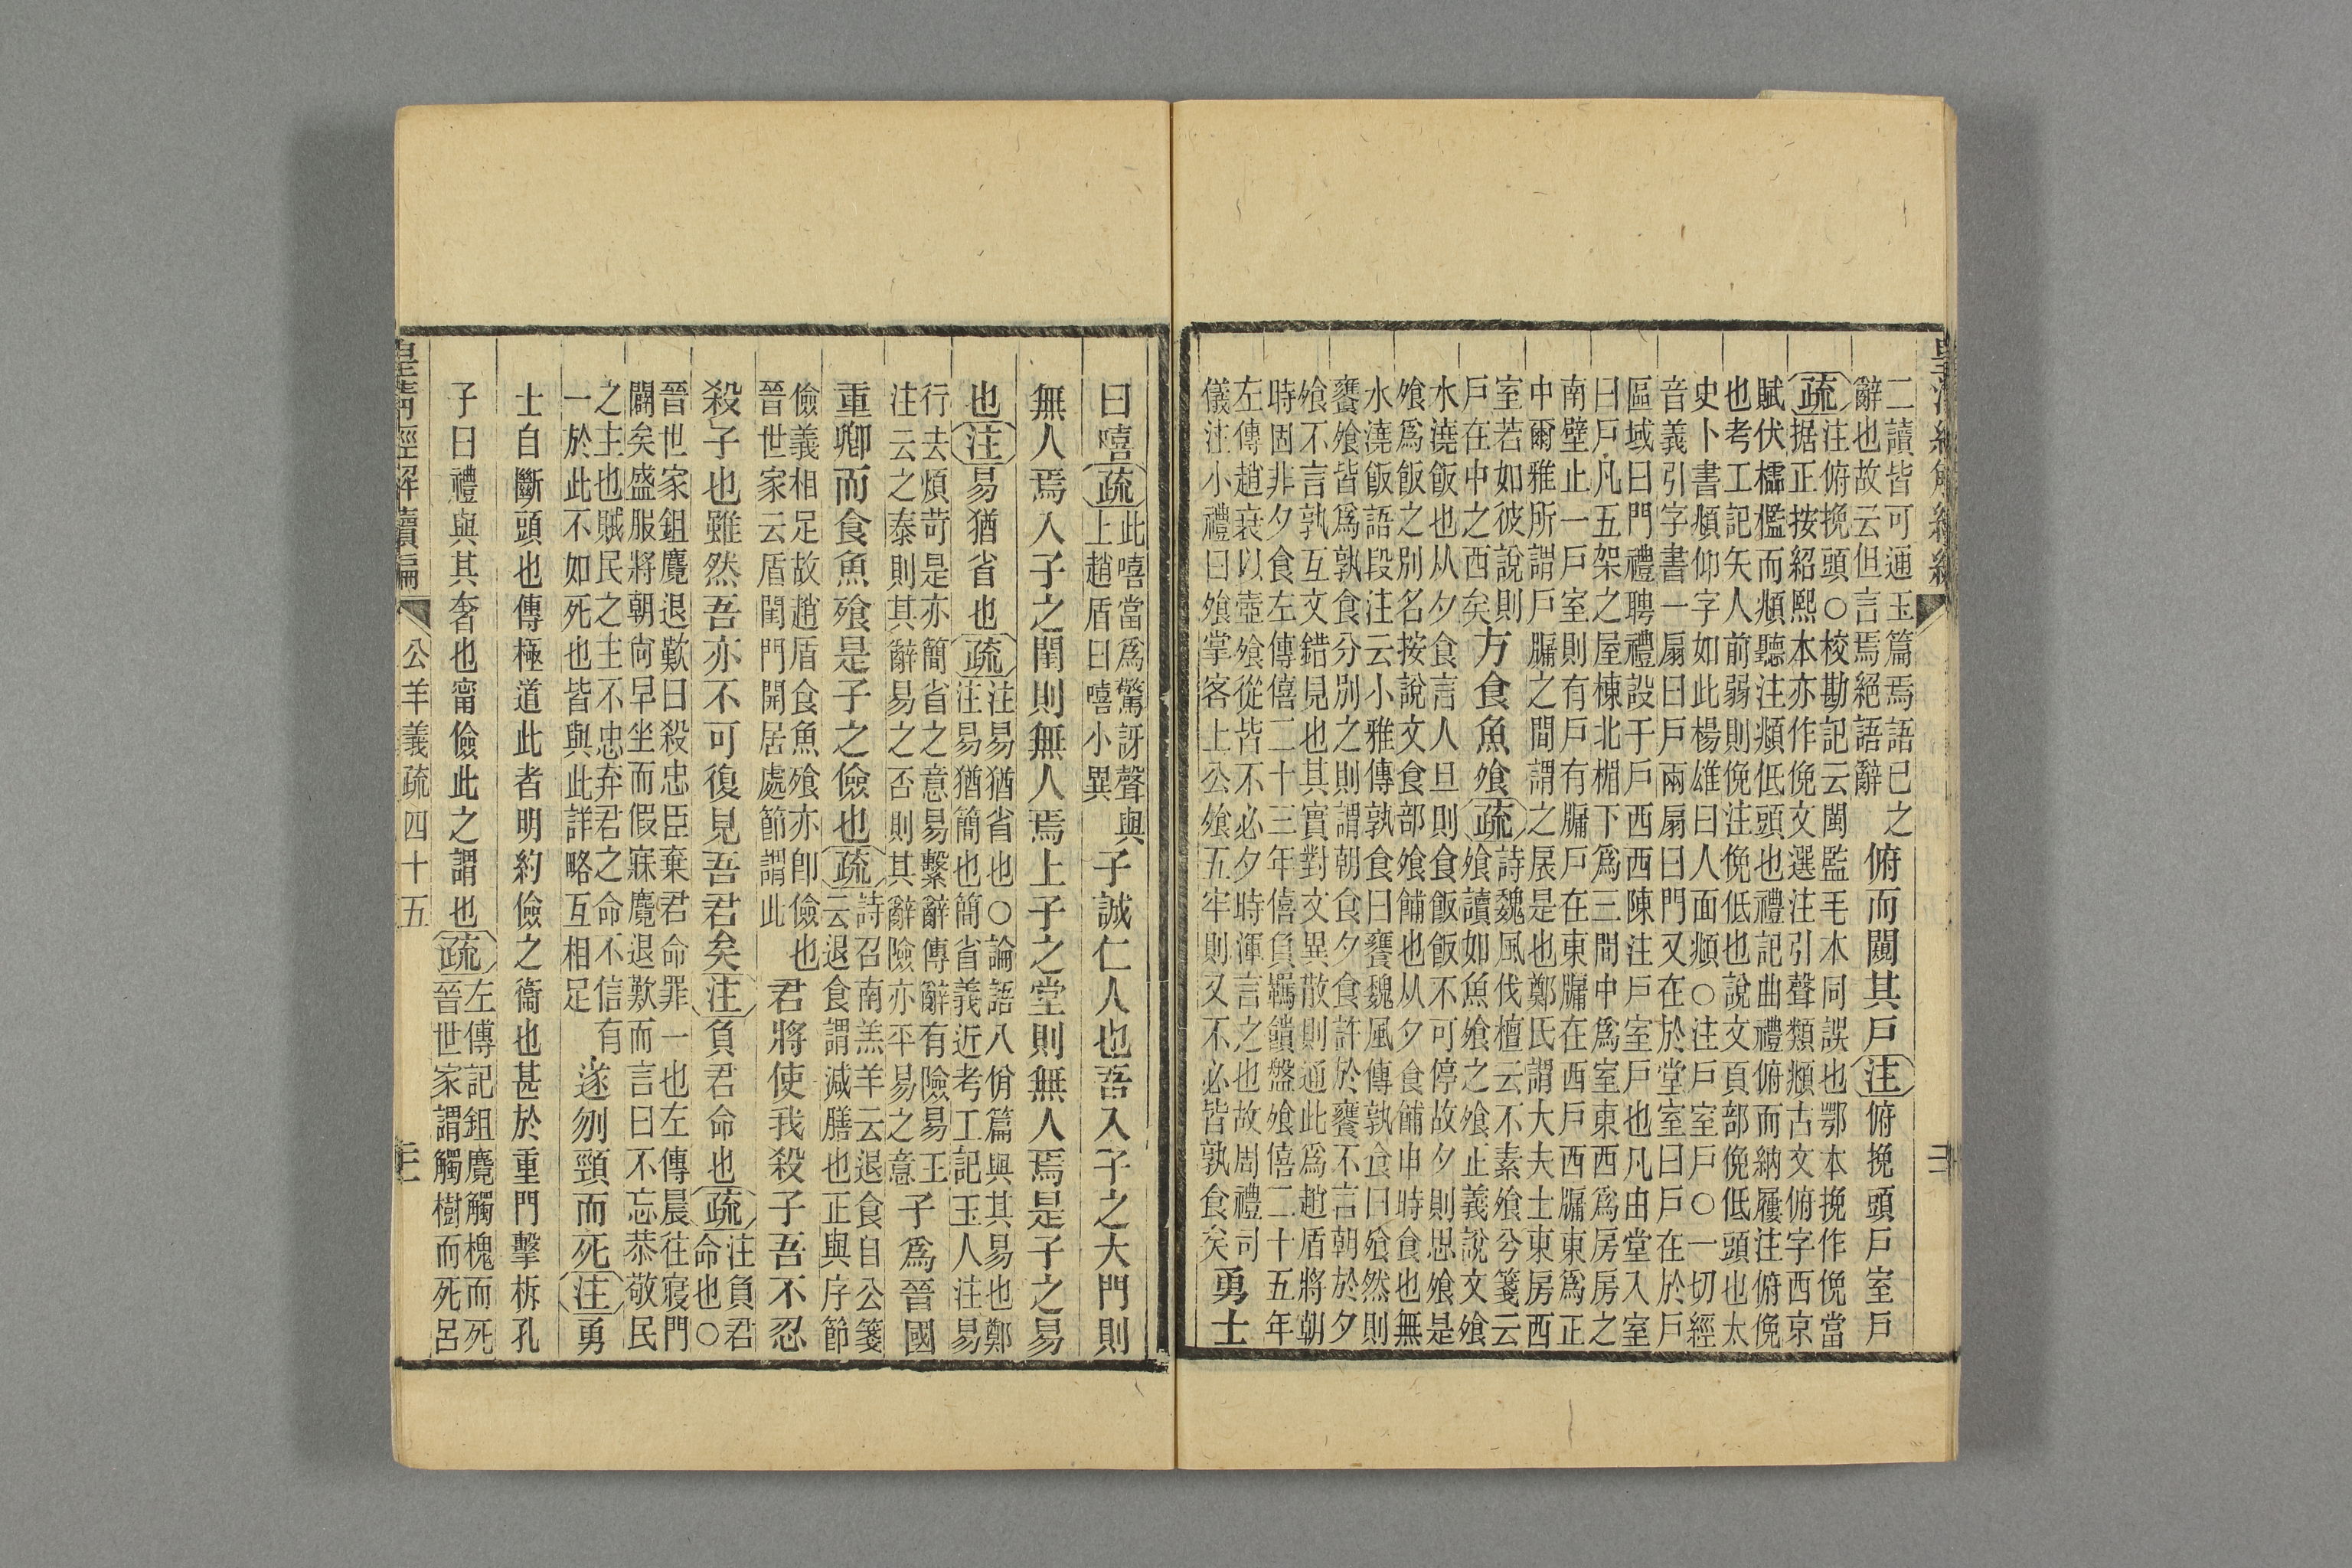 二讀皆可通玉篇焉語已之
辭也故云但言焉絕語辭
俯而闚其戶注俯挽頭戶室戶
疏
注俯挽頭○校勘記云閩監毛本同誤也鄂本挽作俛當
据正按紹熙本亦作俛文選注引聲類頫古文俯字西京
賦伏櫺檻而頫聽注頫低頭也禮記曲禮俯而納屨注俯俛
也考工記矢人前弱則俛注俛低也說文頁部俛低頭也太
史卜書頫仰字如此楊雄曰人面頫○注戶室戶○一切經
音義引字書一扇曰戶兩扇曰門又在於堂室曰戶在於戶
區域曰門禮聘禮設于戶西西陳注戶室戶也凡由堂入室
曰戶凡五架之屋棟北楣下爲三間中爲室東西爲房房之
南壁止一戶室則有戶有牖戶在東牖在西戶西牖東爲正
中爾雅所謂戶牖之間謂之扆是也鄭氏謂大夫士東房西
室若如彼說則
戶在中之西矣
方食魚飧疏
詩魏風伐檀云不素飧兮箋云
飧讀如魚飧之飧止義說文飧
水澆飯也从夕食言人旦則食飯飯不可停故夕則思飧是
飧爲飯之別名按說文食部飧餔也从夕食餔申時食也無
水澆飯語段注云小雅傳孰食曰饔魏風傳孰食曰飧然則
饔飧皆爲孰食分別之則謂朝食夕食許於饔不言朝於夕
飧不言孰互文錯見也其實對文異散則通此爲趙盾將朝
時固非夕食左傳僖二十三年僖負羈饋盤飧僖二十五年
左傳趙衰以壺飧從皆不必夕時渾言之也故周禮司
儀注小禮曰飧掌客上公飧五牢則又不必皆孰食矣
勇士
曰嘻疏
此嘻當爲驚訝聲與
上趙盾曰嘻小異
子誠仁人也吾入子之大門則
無人焉入子之閨則無人焉上子之堂則無人焉是子之易
也注易猶省也疏
注易猶省也○論語八佾篇與其易也鄭
注易猶簡也簡省義近考工記玉人注易
行去煩苛是亦簡省之意易繫辭傳辭有險易王
注云之泰則其辭易之否則其辭險亦平易之意
子爲晉國
重卿而食魚飧是子之儉也疏
詩召南羔羊云退食自公箋
云退食謂減膳也正與序節
儉義相足故趙盾食魚飧亦卽儉也
晉世家云盾閨門開居處節謂此
君將使我殺子吾不忍
殺子也雖然吾亦不可復見吾君矣注負君命也疏
注負君
命也○
晉世家鉏麑退歎曰殺忠臣棄君命罪一也左傳晨往寢門
闢矣盛服將朝尚早坐而假寐麑退歎而言曰不忘恭敬民
之主也賊民之主不忠弃君之命不信有
一於此不如死也皆與此詳略互相足
遂刎頸而死注勇
士自斷頭也傳極道此者明約儉之衞也甚於重門擊柝孔
子曰禮與其奢也甯儉此之謂也疏
左傳記鉏麑觸槐而死
晉世家謂觸樹而死呂
皇清經解續編
公羊義疏四十五